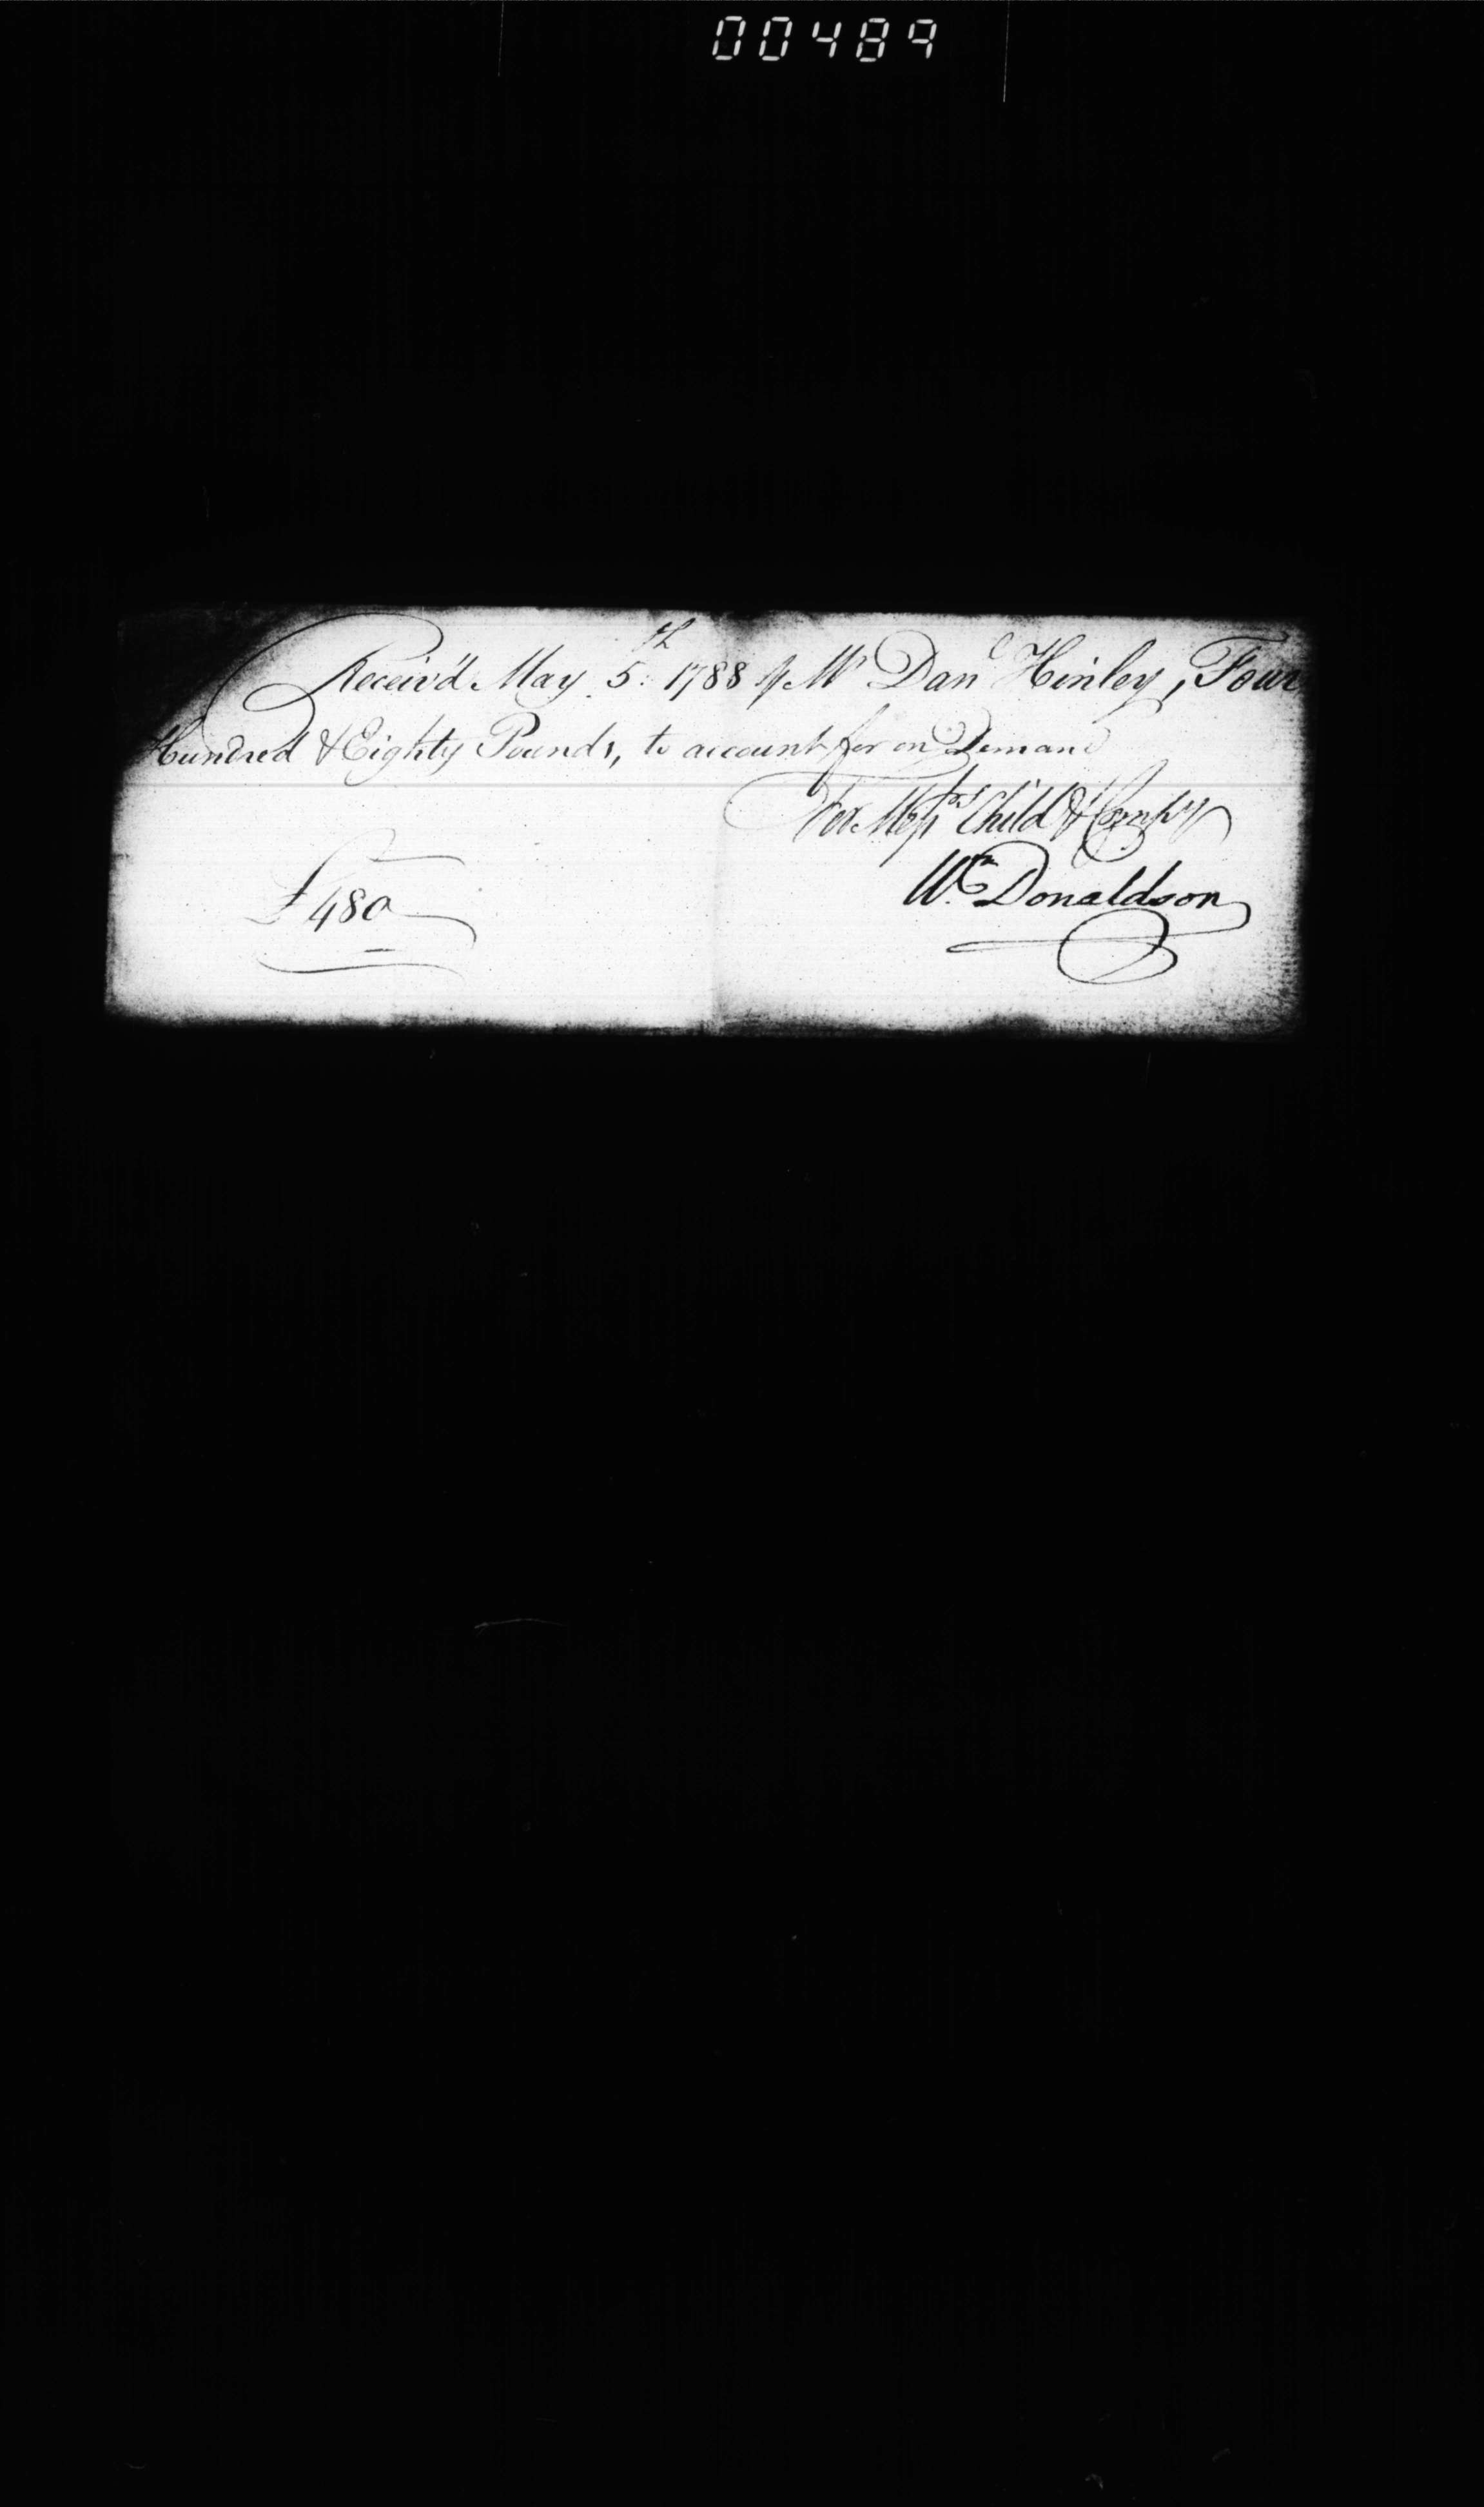 00489
Receiv'd May 5th 1788 of Mr Danl Hinley, Four
Hundred & Eighty Pounds, to account for on Demand
For Messrs Child & Compy
£480
Wm Donaldson